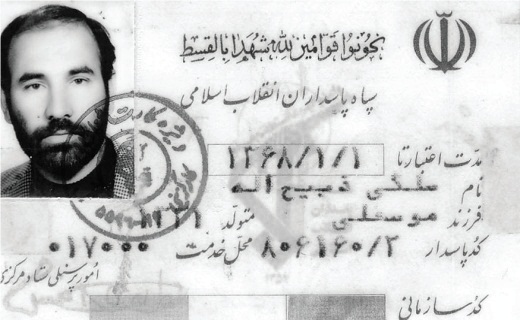 کونوا قوامین لله شهداء بالقسط
سپاه پاسداران انقلاب اسلامی
مدت اعتبار تا ۱۳۶۸/۱/۱
نام سلگی ذبیح اله
فرزند موسعلی متولد
کد پاسدار ۸۰۶۱۶۰/۲ محل خدمت ۰۱۷۰۰۰
امور پرسنلی ستاد مرکزی
کد سازمانی
ویژه کارت